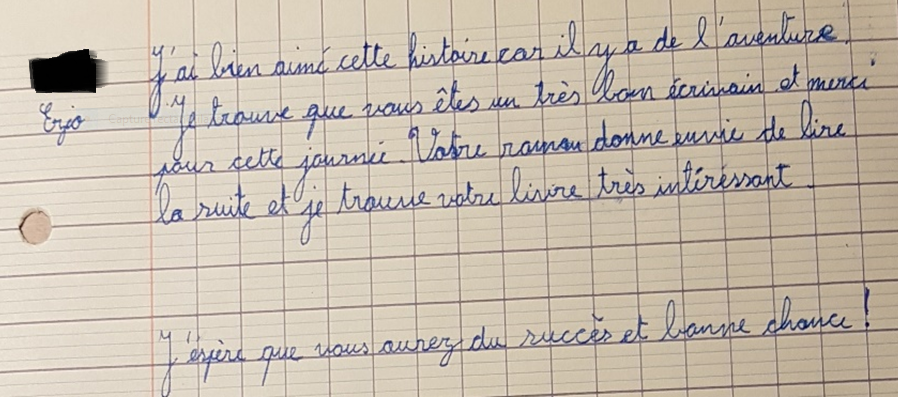 J'ai bien aimé cette histoire car il y a de l'aventure.
Enjo
Je trouve que vous êtes un très bon écrivain et merci
pour cette journée. Votre roman donne envie de lire
la suite et je trouve votre livre très intéressant.
J'éspère que vous aurez du succès et bonne chance !